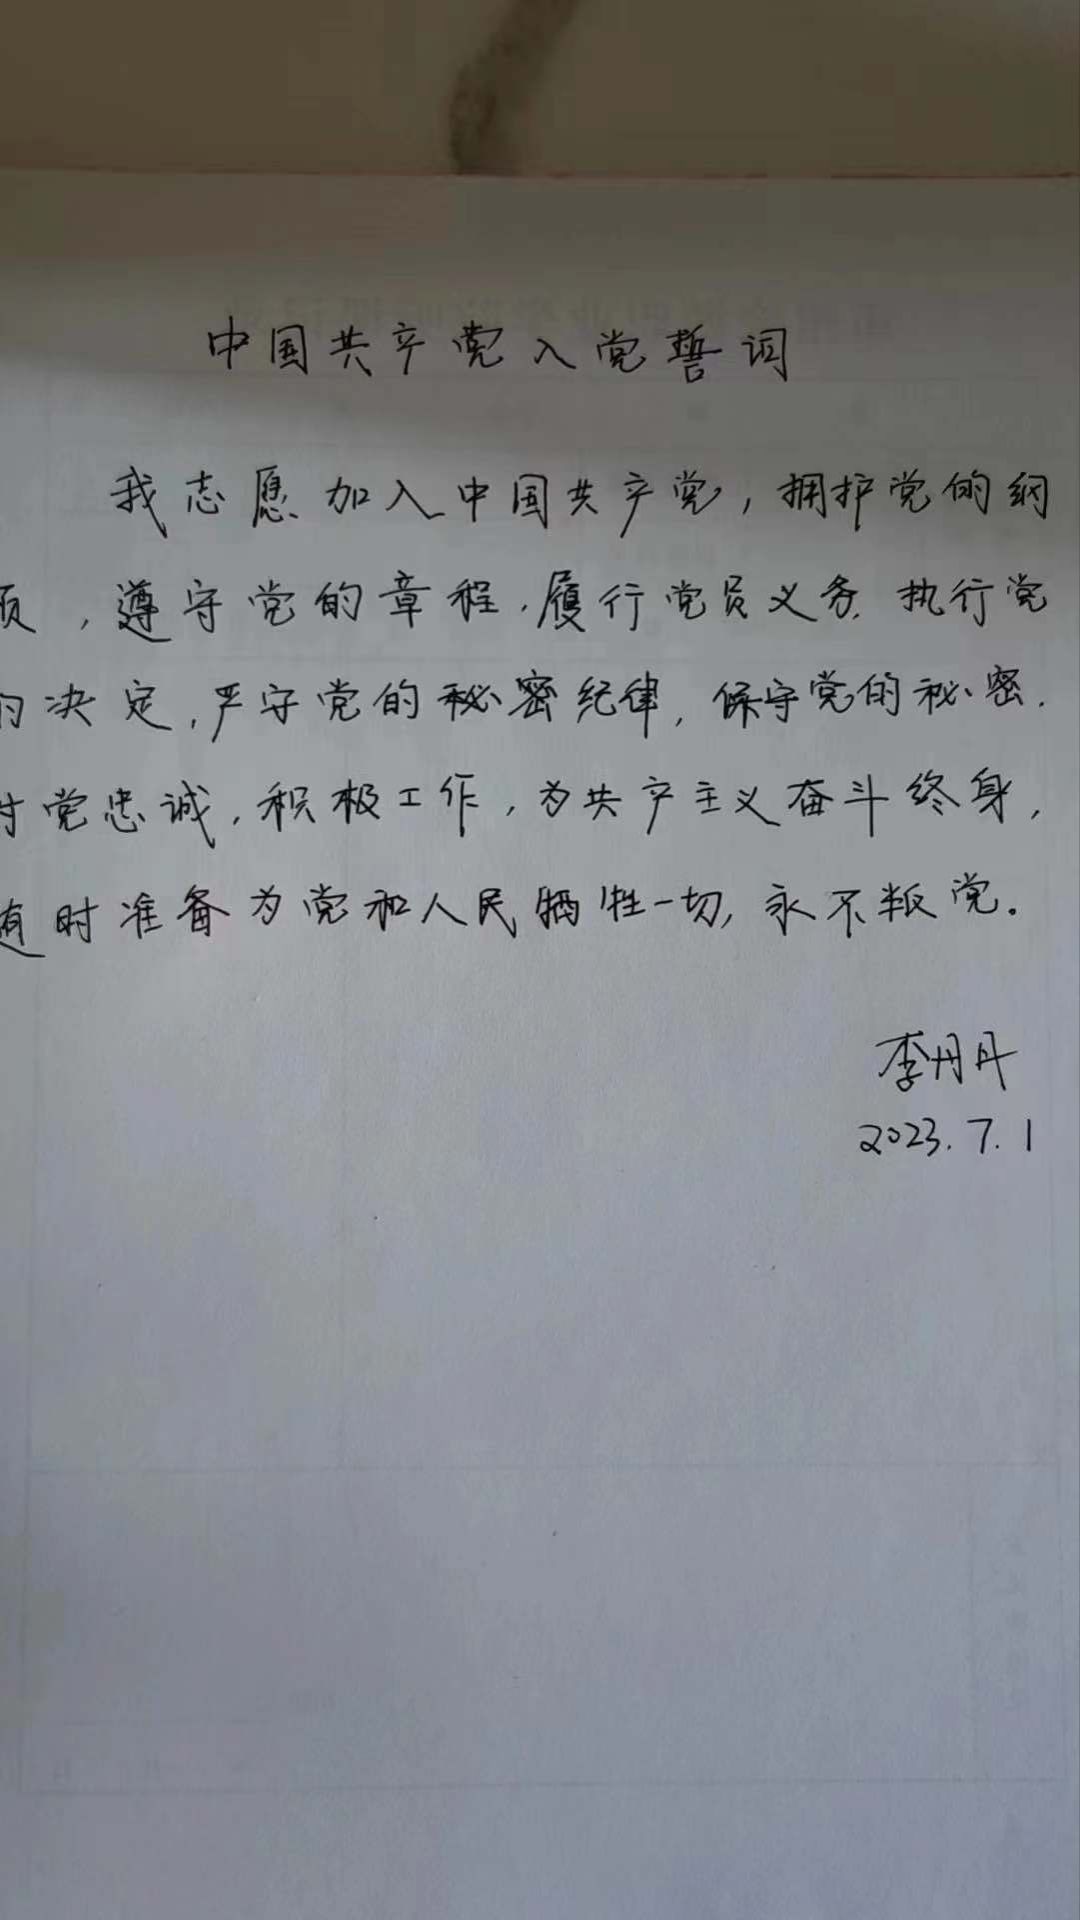 中国共产党入党誓词
我志愿加入中国共产党，拥护党的纲
领，遵守党的章程，履行党员义务，执行党
的决定，严守党的秘密纪律，保守党的秘密，
对党忠诚，积极工作，为共产主义奋斗终身，
随时准备为党和人民牺牲一切，永不叛党。
李丹丹
2023.7.1